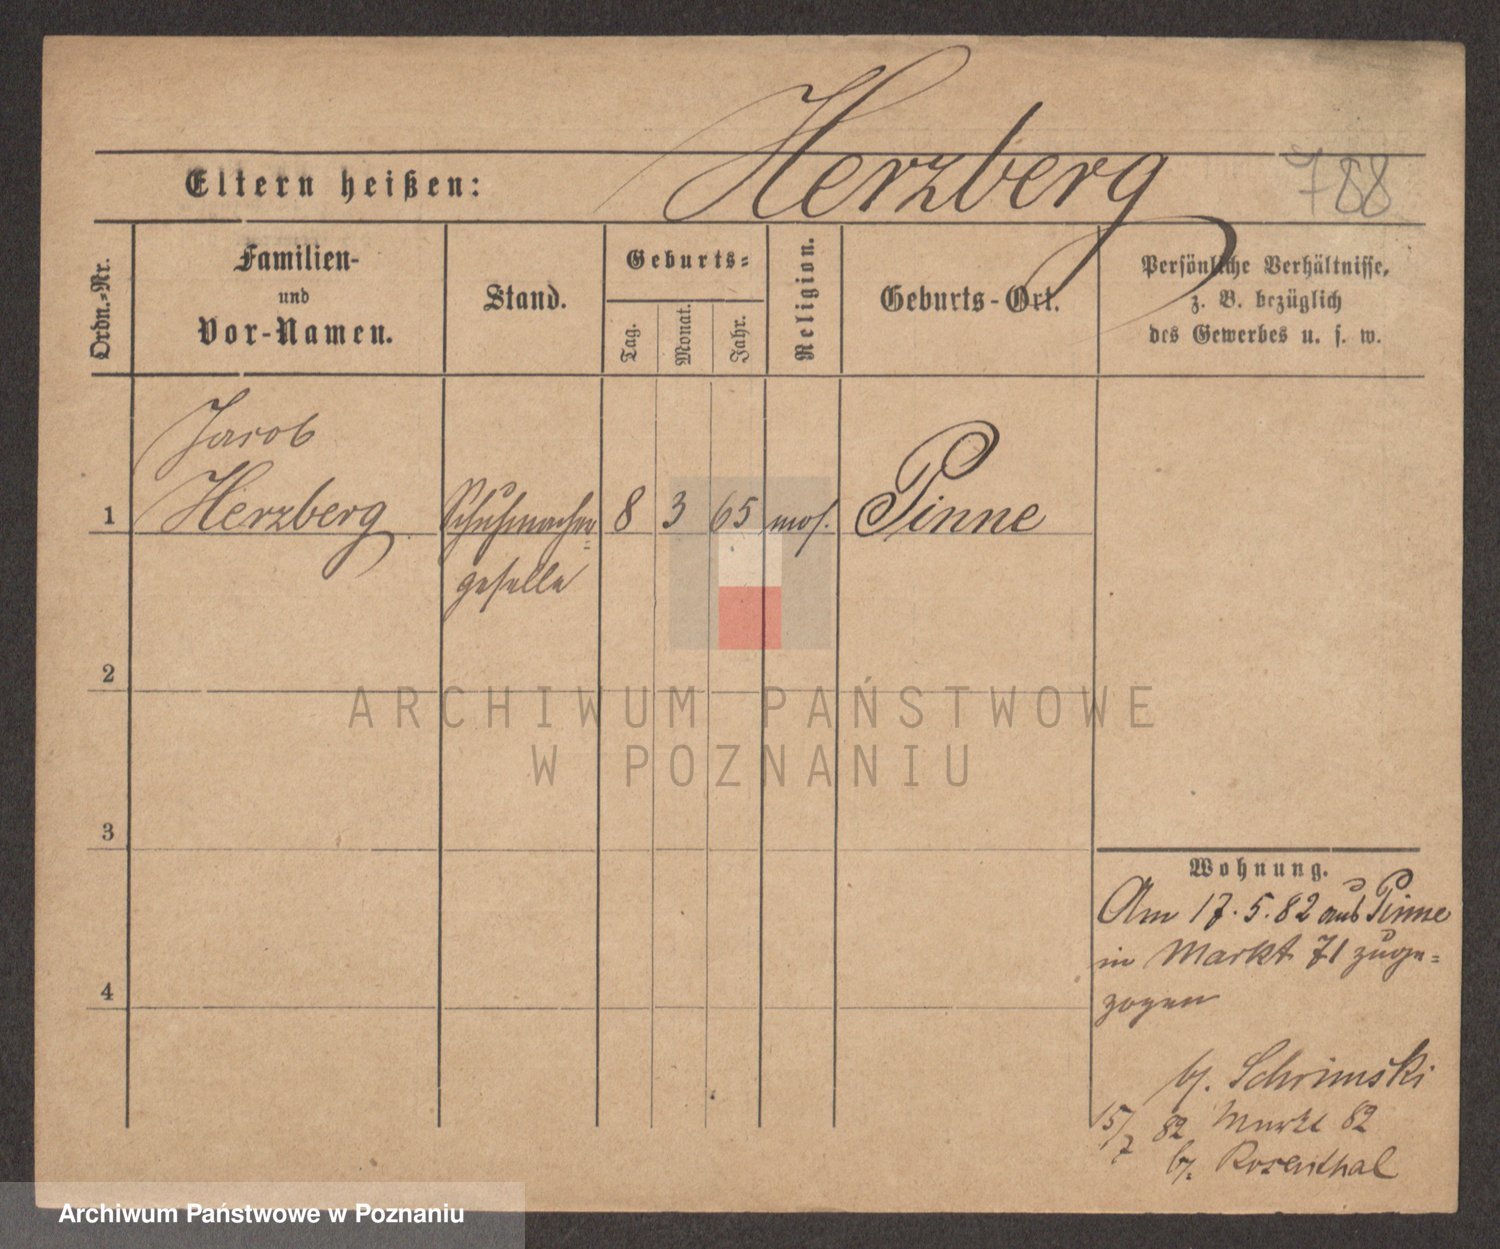 Herzberg
788
Eltern heißen:
Ordn.-Nr.
Familien-
und
Vor-Namen.
Stand.
Geburts-
Tag.
Monat.
Jahr.
Religion.
Geburts-Ort.
Persönliche Verhältnisse,
z. B. bezüglich
des Gewerbes u. s. w.
Jacob
1 Herzberg Schuhmacher= 8 3 65 mos. Pinne
geselle
2
3
4
Wohnung.
Am 17.5.82 aus Pinne
in Markt 71 zuge=
zogen
bj. Schrimski
15/7 82 Markt 82
bj. Rosenthal
ARCHIWUM PAŃSTWOWE
W POZNANIU
Archiwum Państwowe w Poznaniu